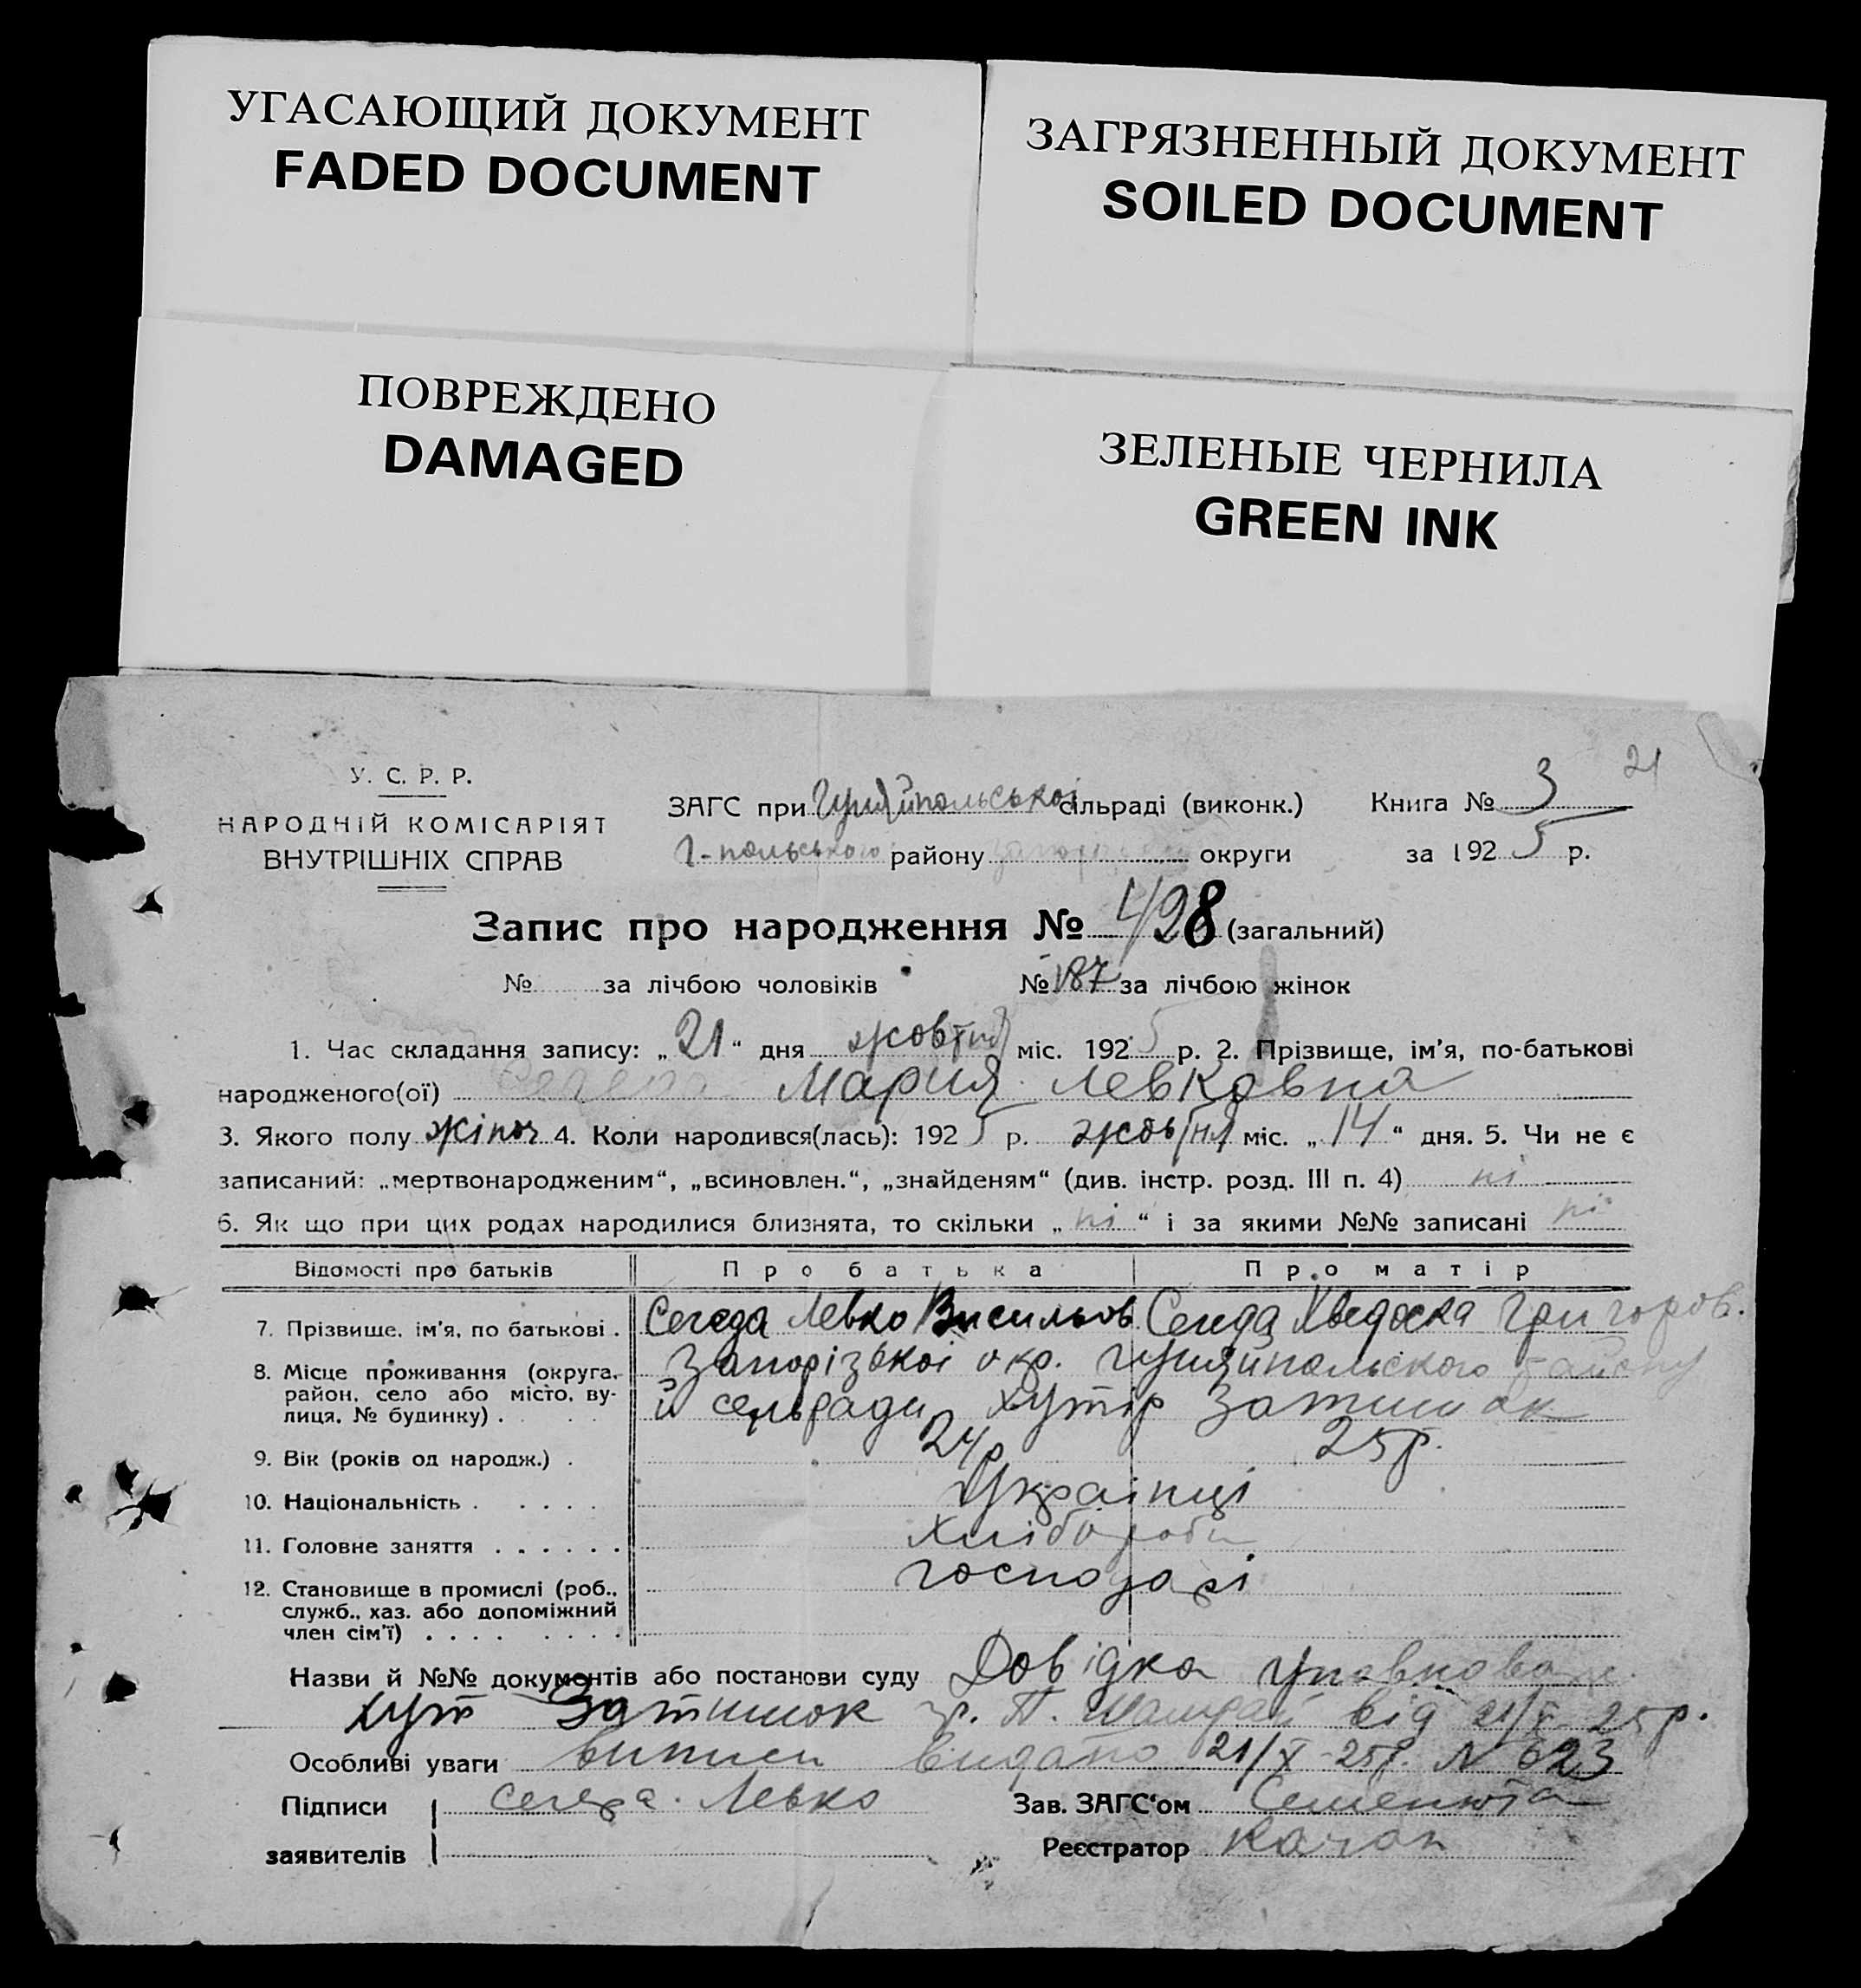 УГАСАЮЩИЙ ДОКУМЕНТ
FADED DOCUMENT
ЗАГРЯЗНЕННЫЙ ДОКУМЕНТ
SOILED DOCUMENT
ПОВРЕЖДЕНО
DAMAGED
ЗЕЛЕНЫЕ ЧЕРНИЛА
GREEN INK
21
У. С. Р. Р.
НАРОДНІЙ КОМІСАРІЯТ
ВНУТРІШНІХ СПРАВ
ЗАГС при Гуляйпольськоі сільраді (виконк.)
Книга № 3
Г-польського району округи
за 1925 р.
Запис про народження № 428 (загальний)
№ за лічбою чоловіків № 187 за лічбою жінок
1. Час складання запису: „21“ дня жовтня міс. 1925 р. 2. Прізвище, ім'я, по-батькові
народженого(ої) Сегеда Мария Левковна
3. Якого полу жіноч 4. Коли народився(лась): 1925 р. жовтня міс. „14“ дня. 5. Чи не є
записаний: „мертвонародженим“, „всиновлен.“, „знайденям“ (див. інстр. розд. III п. 4) ні
6. Як що при цих родах народилися близнята, то скільки „ні“ і за якими №№ записані ні
Відомості про батьків Про батька Про матір
7. Прізвище, ім'я, по батькові . Сегеда Левко Васильов. Сегеда Хведоска Григоров.
8. Місце проживання (округа, Запорізькоі окр. Гуляйпольского району
район, село або місто, ву- й сельради хутір Затишок
лиця, № будинку) .
9. Вік (років од народж.) . 24р 25р.
10. Національність . . . . . Українці
11. Головне заняття . . . . . . Хлібороби
12. Становище в промислі (роб., господарі
служб., хаз. або допоміжний
член сім'ї) . . . . . . . .
Назви й №№ документів або постанови суду Довідка уповнова
хут Затишок гр. П. від 21/X-25р.
Особливі уваги виписи видано 21/X-25р. N 623
Підписи Сегеда. Левко Зав. ЗАГС'ом Семенюта
заявителів Реєстратор Качан